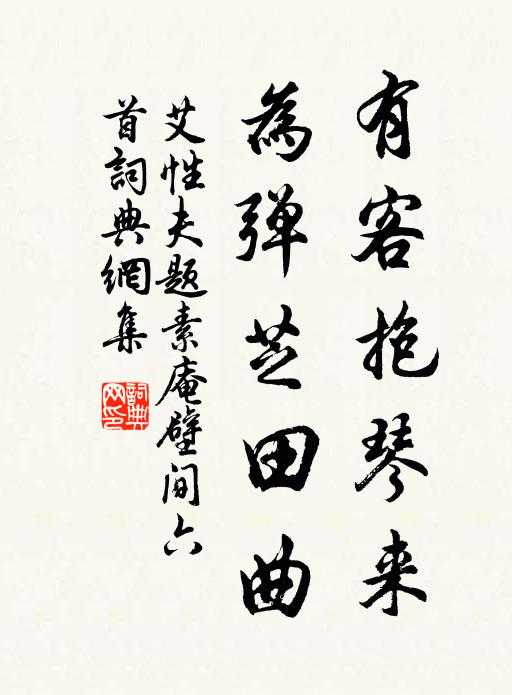 有客抱琴来
為弹芝田曲
艾性夫题素庵壁间六
首詞典網集
詞典
网印